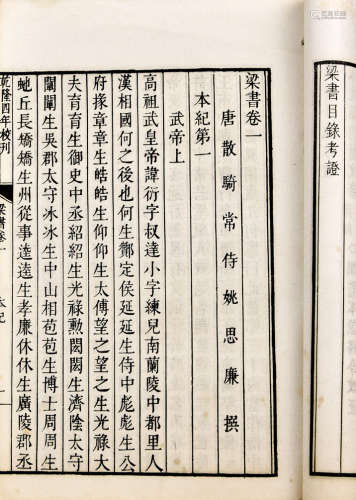 梁書目錄考證
梁書卷一
唐散騎常侍姚思廉撰
本紀第一
武帝上
高祖武皇帝諱衍字叔達小字練兒南蘭陵中都里人
漢相國何之後也何生酇定侯延延生侍中彪彪生公
府掾章章生皓皓生仰仰生太傅望之望之生光祿大
夫育育生御史中丞紹紹生光祿勲閎閎生濟陰太守
闡闡生吳郡太守冰冰生中山相苞苞生博士周周生
虵丘長矯矯生州從事逵逵生孝廉休休生廣陵郡丞
乾隆四年校刊
梁書卷一
本紀